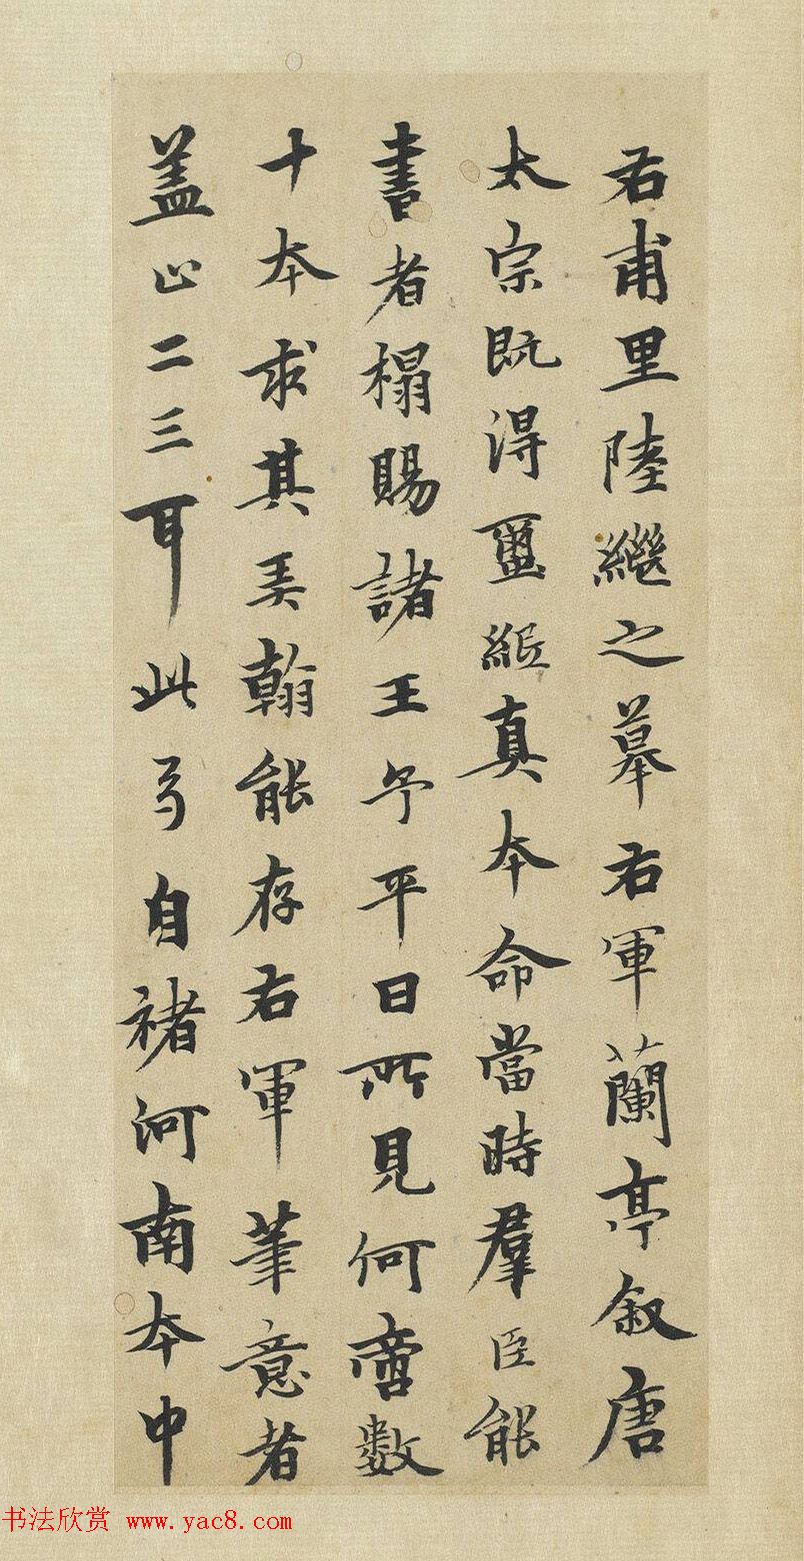 右甫里陸繼之摹右軍蘭亭叙唐
太宗既得璽紙真本命當時羣臣能
書者搨賜諸王予平日所見何啻數
十本求其美翰能存右軍筆意者
盖止二三耳此乃自褚河南本中
书法欣赏 www.yac8.com